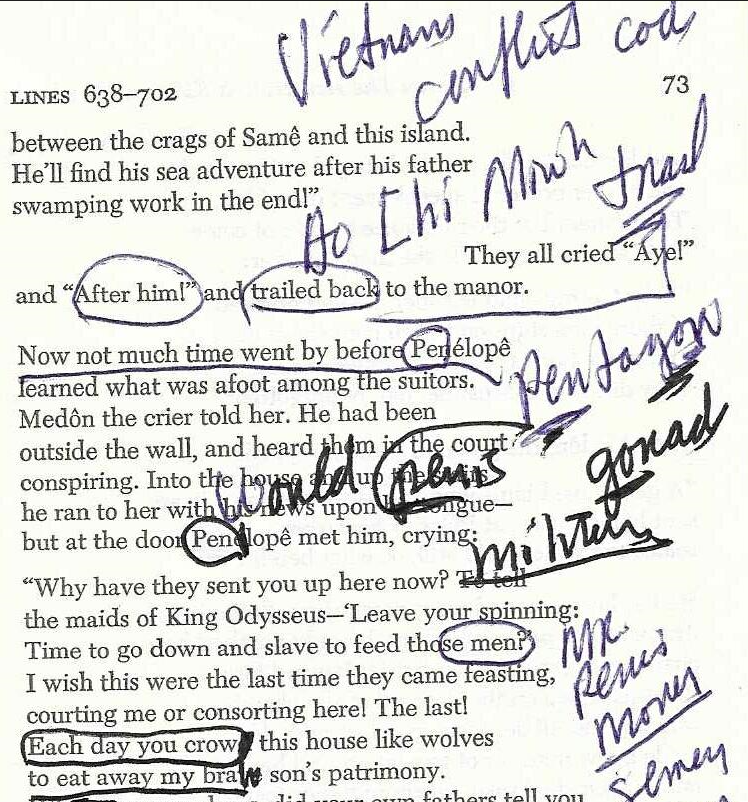 Vietnam
conflict cod
LINES 638–702 73
between the crags of Samê and this island.
He'll find his sea adventure after his father
swamping work in the end!"
Ho Chi Minh trail
They all cried "Aye!"
and "After him!" and trailed back to the manor.
Now not much time went by before Penélopê
learned what was afoot among the suitors.
pentagon
Medôn the crier told her. He had been
outside the wall, and heard them in the court
gonad
conspiring. Into the house and up the stairs
would penis
he ran to her with his news upon his tongue—
but at the door Penélopê met him, crying:
military
"Why have they sent you up here now? To tell
the maids of King Odysseus—'Leave your spinning:
Time to go down and slave to feed those men?'
Mr.
I wish this were the last time they came feasting,
Penis
courting me or consorting here! The last!
Money
Each day you crowd this house like wolves
to eat away my brave son's patrimony.
did your own fathers tell you